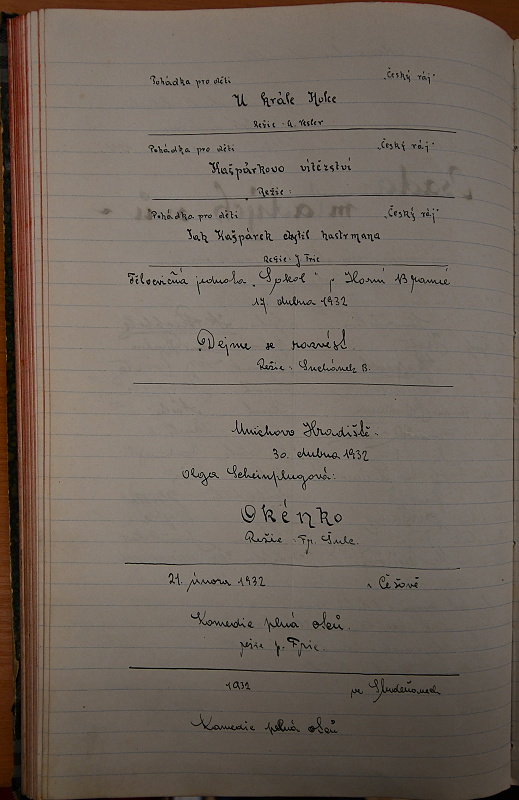 Pohádka pro děti „Český ráj"
U krále Holce
Režie: A. Vesler
Pohádka pro děti „Český ráj"
Kašpárkovo vítězství
Režie:
Pohádka pro děti „Český ráj"
Jak Kašpárek chytil hastrmana
Režie: J. Fric
Tělocvičná jednota „Sokol" v Horní Branné
17. dubna 1932
Dejme se rozvést.
Režie: Suchánek B.
Mnichovo Hradiště.
30. dubna 1932
Olga Scheinpflugová:
Okénko
Režie: Fr. Šulc.
21. února 1932 v Češově
Komedie plná oslů.
režie p. Fric.
1932 ve Studeňanech
Komedie plná oslů